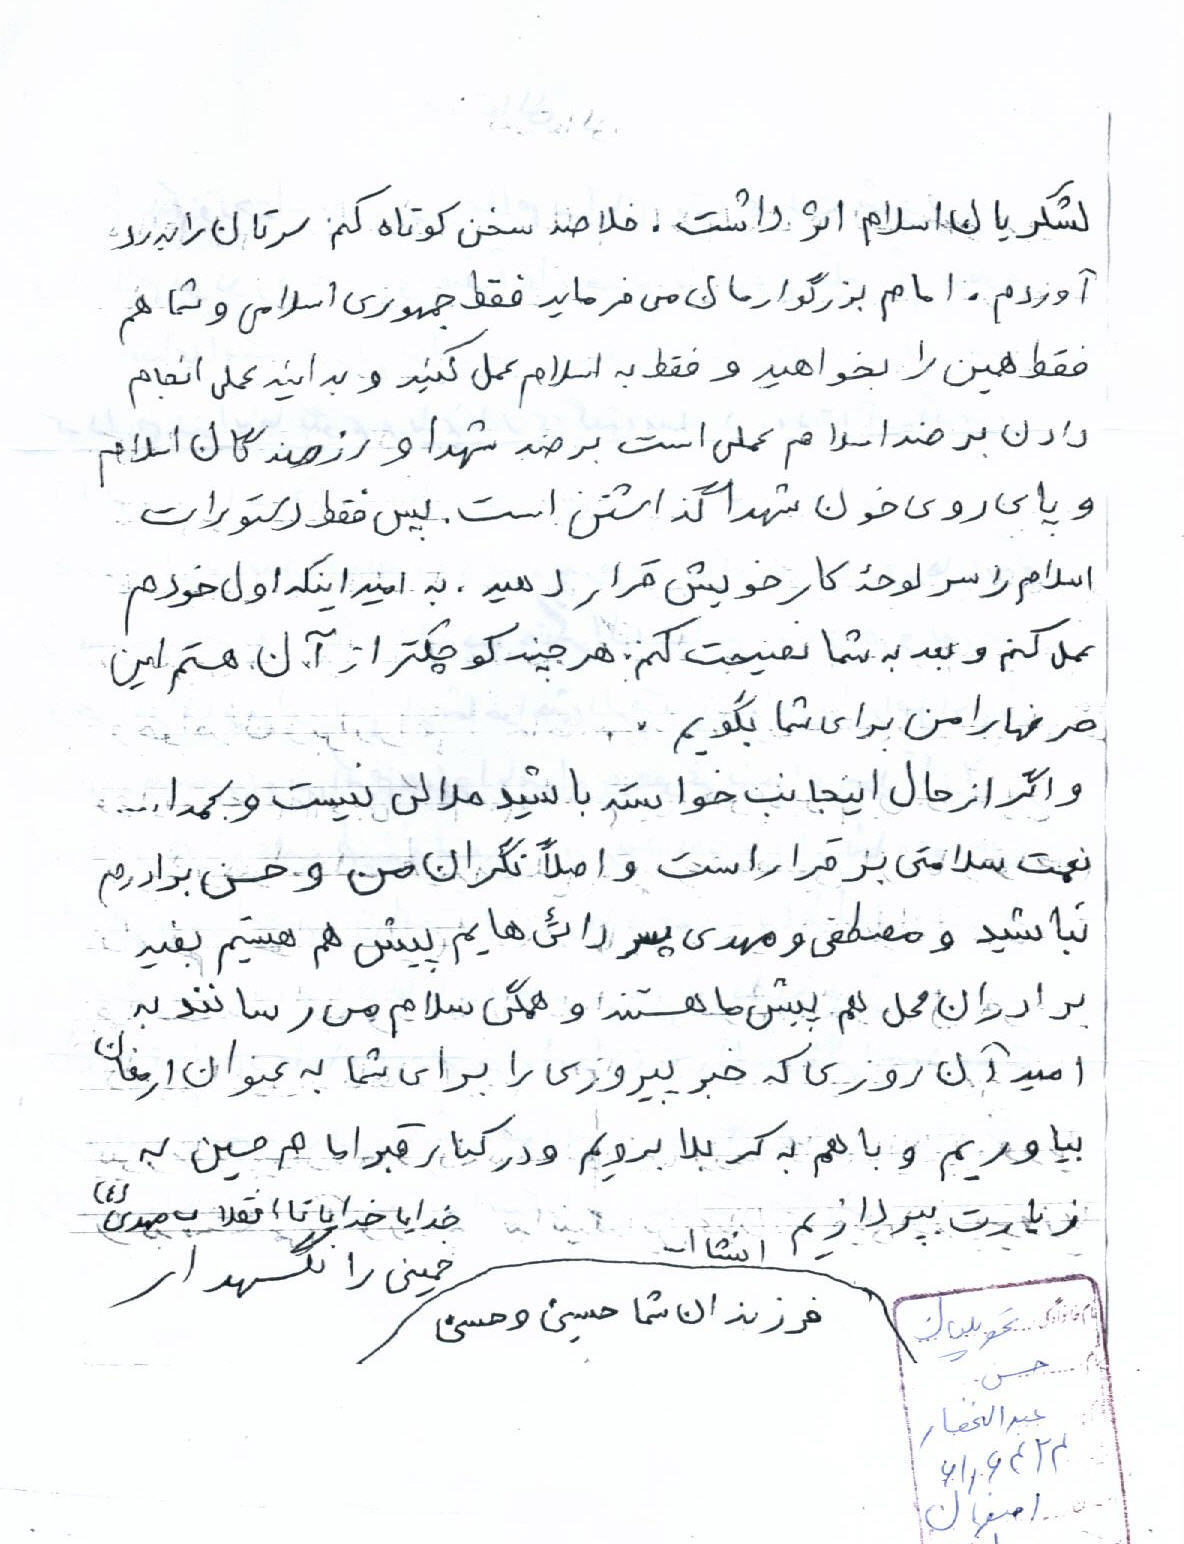 لشکریان اسلام اثر داشت. خلاصه سخن کوتاه کنم سرتان را بدرد
آوردم. امام بزرگوارمان می فرماید فقط جمهوری اسلامی و شما هم
فقط همین را بخواهید و فقط به اسلام عمل کنید و بدانید عملی انجام
دادن بر ضد اسلام عملی است بر ضد شهدا و رزمندگان اسلام
و پای روی خون شهدا گذاشتن است. پس فقط دستورات
اسلام را سر لوحۀ کار خویش قرار دهید. به امید اینکه اول خودم
عمل کنم و بعد به شما نصیحت کنم. هر چند کوچکتر از آن هستم این
حرفها را من برای شما بگویم.
و اگر از حال اینجانب خواسته باشید ملالی نیست و بحمدا...
نعمت سلامتی برقرار است و اصلاً نگران من و حسن برادرم
نباشید و مصطفی و مهدی پسر دائی هایم پیش هم هستیم بقیه
برادران محل هم پیش ما هستند و همگی سلام می رسانند به
امید آن روزی که خبر پیروزی را برای شما به عنوان ارمغان
بیاوریم و با هم به کربلا برویم و در کنار قبر امام حسین به
زیارت بپردازیم انشاا...
خدایا خدایا تا انقلاب مهدی (ع)
خمینی را نگهدار
فرزندان شما حسین و حسن
نام خانوادگی
حسن
عبدالغفار
اصفهان